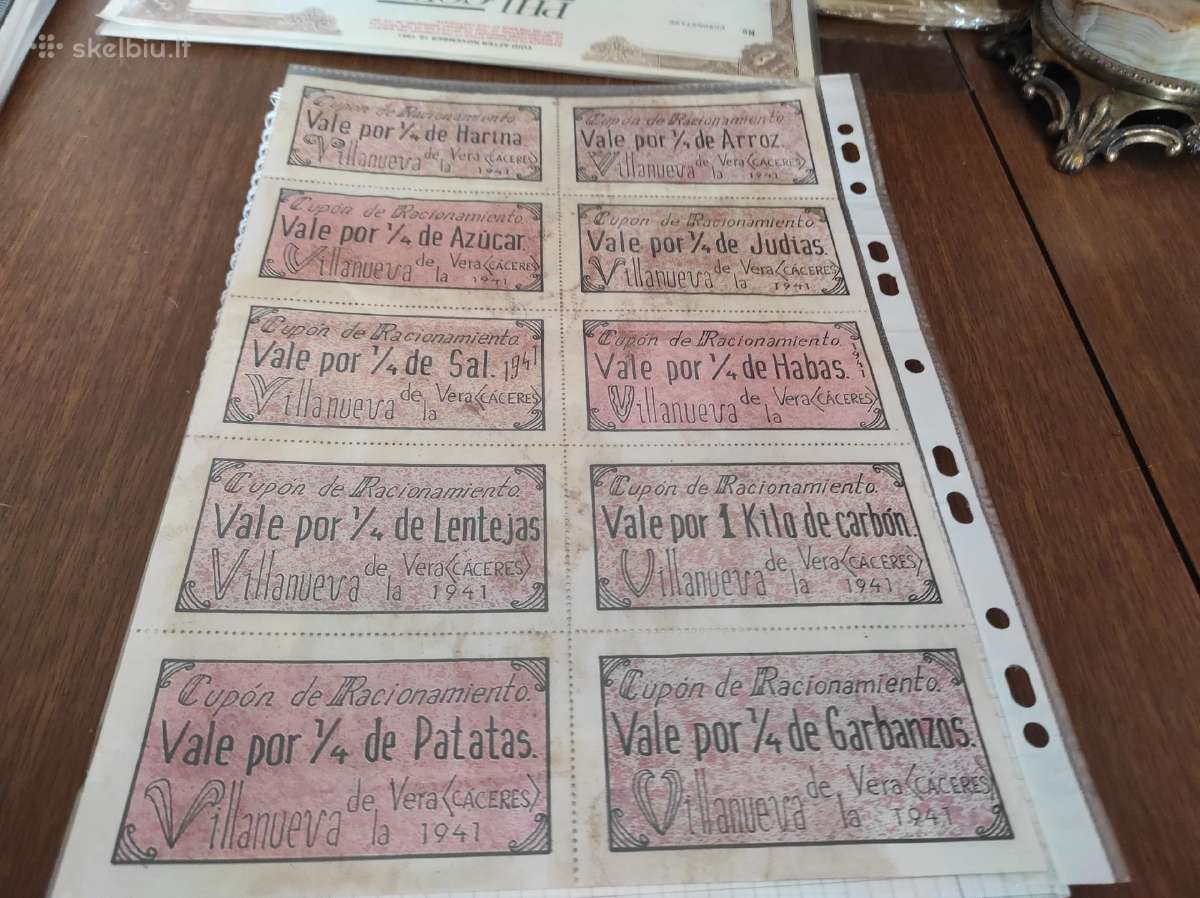 skelbiu.lt
VOID AFTER NOVEMBER 16, 1981
No
Cupón de Racionamiento
Vale por ¼ de Harina
Villanueva de la Vera (CÁCERES)
1941
Cupón de Racionamiento
Vale por ¼ de Arroz
Villanueva de la Vera (CÁCERES)
1941
Cupón de Racionamiento.
Vale por ¼ de Azúcar.
Villanueva de la Vera (CÁCERES)
1941
Cupón de Racionamiento
Vale por ¼ de Judías.
Villanueva de la Vera (CÁCERES)
1941
Cupón de Racionamiento.
Vale por ¼ de Sal. 1941
Villanueva de la Vera (CÁCERES)
Cupón de Racionamiento.
Vale por ¼ de Habas. 1941
Villanueva de la Vera (CÁCERES)
Cupón de Racionamiento.
Vale por ¼ de Lentejas
Villanueva de la Vera (CÁCERES)
1941
Cupón de Racionamiento.
Vale por 1 Kilo de carbón.
Villanueva de la Vera (CÁCERES)
1941
Cupón de Racionamiento.
Vale por ¼ de Patatas.
Villanueva de la Vera (CÁCERES)
1941
Cupón de Racionamiento.
Vale por ¼ de Garbanzos.
Villanueva de la Vera (CÁCERES)
1941